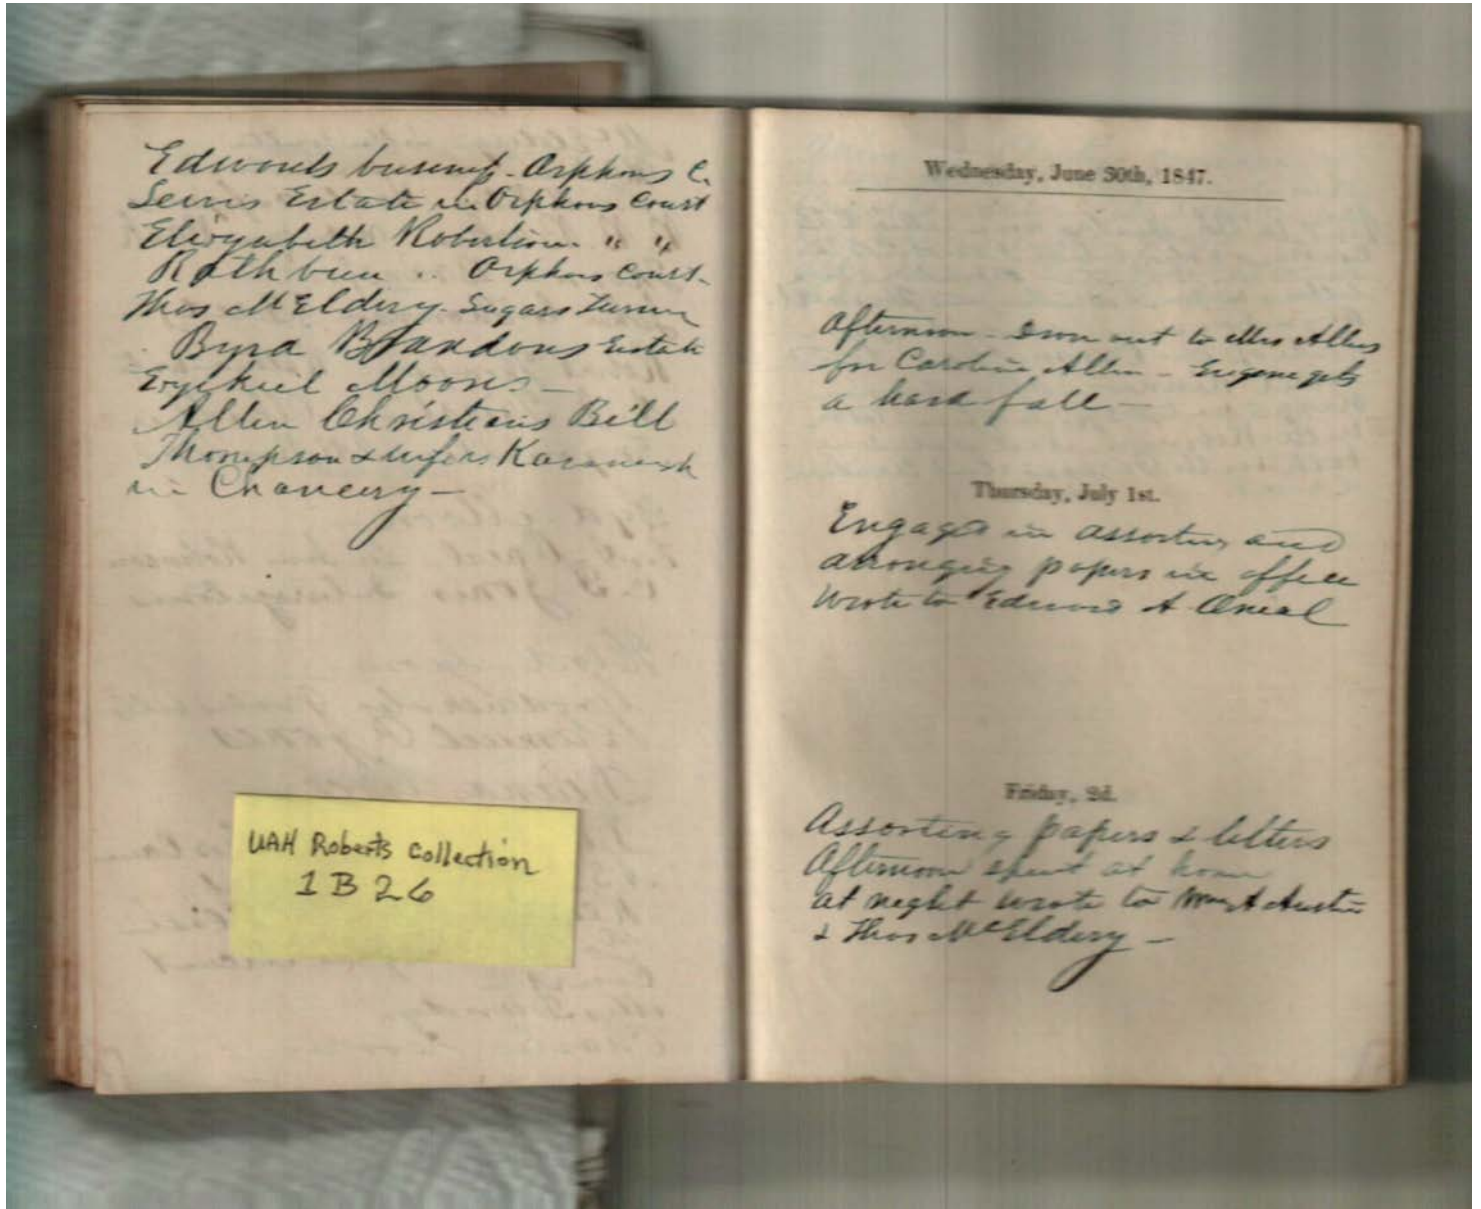 Edwards business - Orphans C.
Lewis Estate in Orphans Court
Elizabeth Robertson " "
Rathbun .. Orphans Court -
Thos McEldery - Sugars Turner
Byrd Brandons Estate
Ezekiel Moons -
Allen Christians Bill
Thompson & wife vs
in Chancery -
UAH Roberts Collection
1 B 26
Wednesday, June 30th, 1847.
Afternoon - out to Mrs Allens
for Caroline Allen - Eugene gets
a hard fall -
Thursday, July 1st.
Engaged in assorting and
arranging papers in office
wrote to Edward A Oneal
Friday, 2d.
Assorting papers & letters
Afternoon spent at home
at night wrote to Austin
& Thos McEldery -